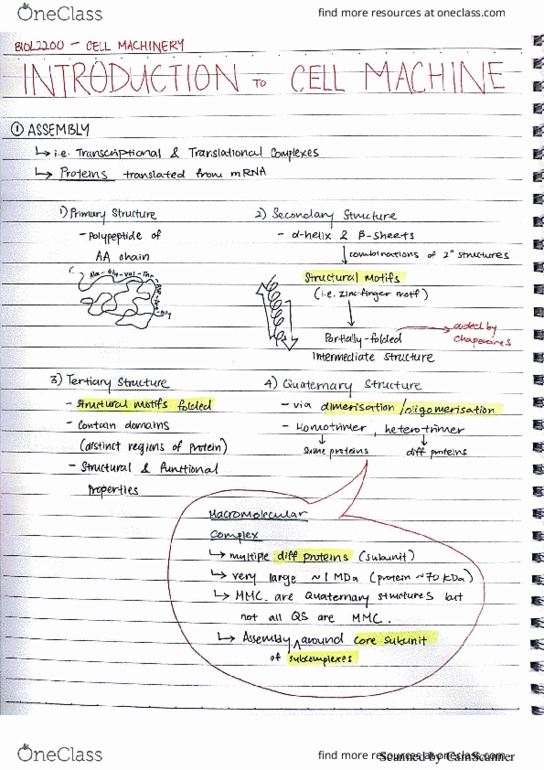 OneClass find more resources at oneclass.com
BIOL2200 - CELL MACHINERY
INTRODUCTION TO CELL MACHINE
① ASSEMBLY
↳ i.e. Transcriptional & Translational Complexes
↳ Proteins translated from mRNA
1) Primary Structure
- Polypeptide of
AA chain
2) Secondary Structure
- α-helix & β-sheets
↓ combinations of 2° structures
Structural Motifs
(i.e. zinc finger motif)
↓
Partially-folded → aided by
chaperones
Intermediate structure
3) Tertiary Structure
- Structural motifs folded
- Contain domains
(distinct regions of protein)
- Structural & functional
Properties
4) Quaternary Structure
- via dimerisation/oligomerisation
- Homotrimer, heterotrimer
↓ ↓
same proteins diff proteins
Macromolecular
Complex
↳ multiple diff proteins (subunit)
↳ very large ~1 MDa (protein ~70 kDa)
↳ MMC. are Quaternary structures but
not all QS are MMC.
↳ Assembly around core subunit
of subcomplexes
OneClass find more resources at oneclass.com
Scanned by CamScanner